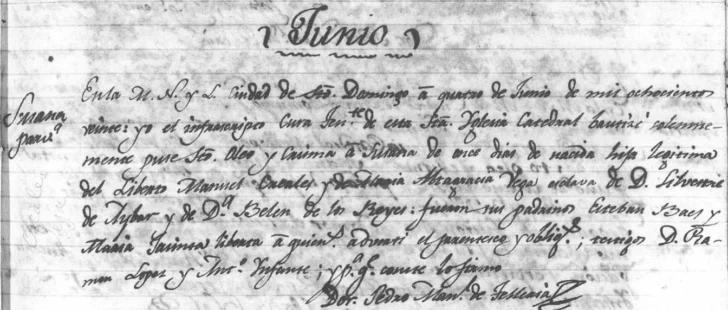 Junio
Susana
parv.ª
En la M. N. y L. Ciudad de Sto. Domingo á quatro de Junio de mil ochocientos
veinte: yo el infraescripto Cura Ten.te de esta Sta. Yglecia Catedral bautizé solemne-
mente puse Sto. Oleo y Crisma á Susana de once dias de nacida hija legitima
del Liberto Manuel y de Maria Altagracia Vega esclava de D. Silvestre
de Aybar y de D.ª Belen de los Reyes: fueron sus padrinos Esteban Baes y
Maria Jacinta liberta á quien.s advertí el parentesco y oblig.s; testigos D. Ra-
mon Lopez y Ant.o Ynfante; y p.ª q.e conste lo firmo
Dor. Pedro Man.l de